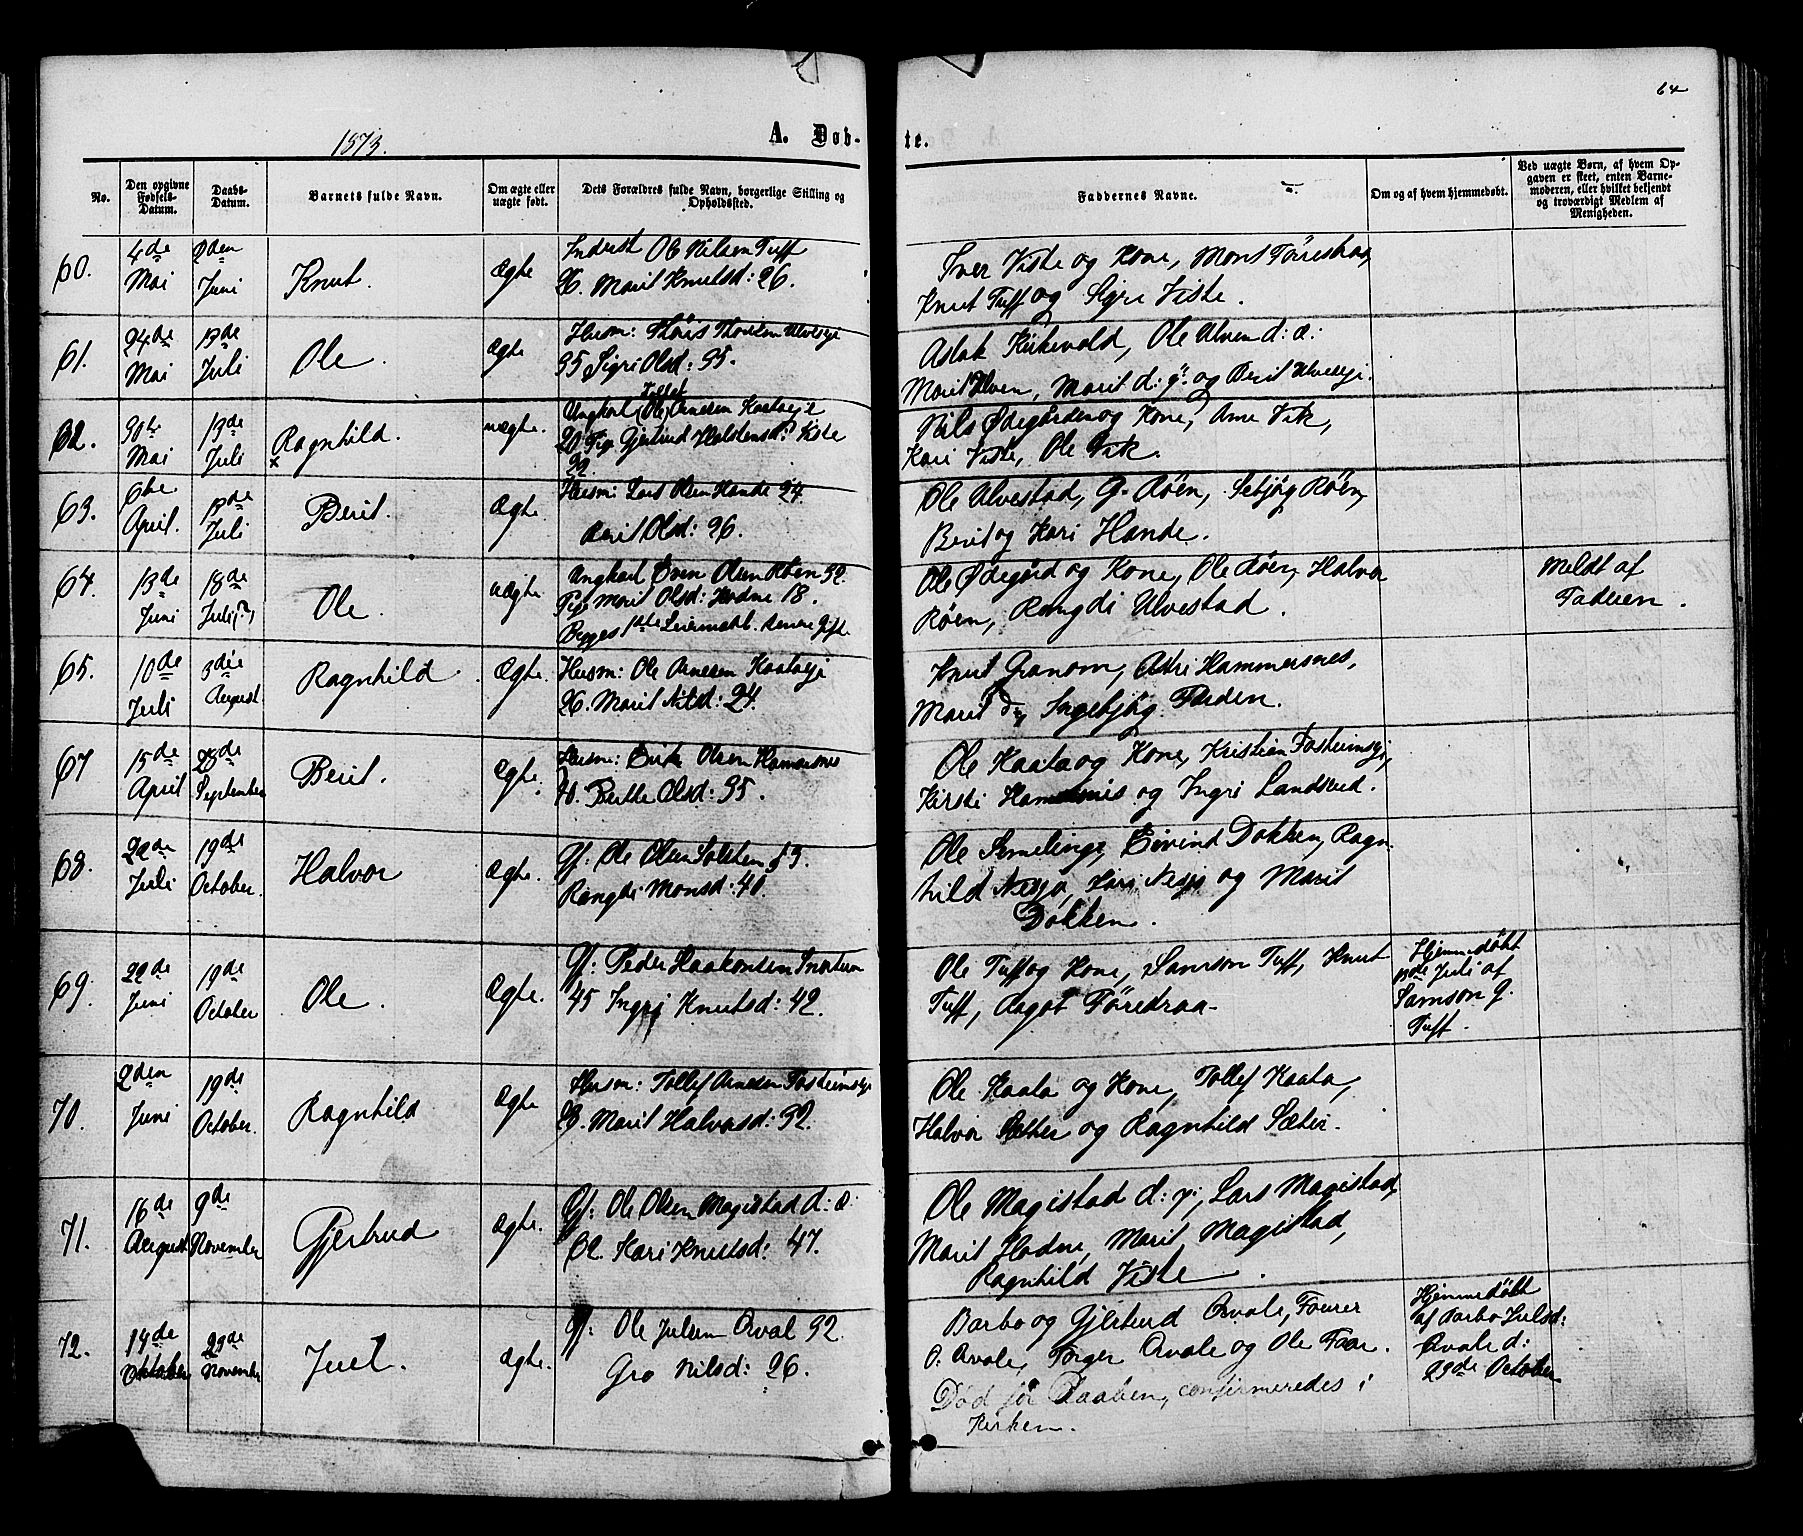 64
1873.
A. Døb-
te.
No.
Den opgivne Fødsels-Datum.
Daabs-Datum.
Barnets fulde Navn.
Om ægte eller uægte født.
Dets Forældres fulde Navn, borgerlige Stilling og Opholdssted.
Faddernes Navne.
Om og af hvem hjemmedøbt.
Ved uægte Børn, af hvem Opgaven er skeet, enten Barnemoderen, eller hvilket bekjendt og troværdigt Medlem af Menigheden.
60.
4de Mai
2den Juni
Knut.
Ægte
Inderst Ole Nilsen Tuff
26. Marit Knutsd: 26.
Iver Viste og Kone, Mons
Knut Tuff og Sigri Viste.
61.
24de Mai
13de Juli
Ole.
Ægte
Husm: Thoris Thorsen Ulveseje
35 Sigri Olsd: 35.
Aslak Kirkevold, Ole Ulven d: æ:
Marit Ulven, Marit d: y: og Berit Ulveseje.
62.
Mai
13de Juli
Ragnhild.
uægte.
Ungkarl Ole Arnesen Kaataeje
20 Pige Gjertrud Halstensd: Viste
22.
Nils Ødegården og Kone, Arne Vik,
Kari Viste, Ole Vik.
63.
6te April.
13de Juli
Berit.
Ægte.
Husm: Lars Olsen Hande 24
Berit Olsd: 26.
Ole Ulvestad, G. Røen, Sebjøg Røen,
Berit og Kari Hande.
64.
13de Juni
18de Juli(?)
Ole.
uægte
Ungkarl Even Olsen Røen 32.
Pige Marit Olsd: Hodne 18.
Begges 1ste Leiermaal. senere Gifte
Ole Ødegård og Kone, Ole Røen, Halvor
Røen, Rangdi Ulvestad.
Meldt af
Faderen.
65.
10de Juli
3die August
Ragnhild
Ægte.
Husm: Ole Arnesen Kaataeje
26. Marit Nilsd: 24.
Knut Granom, Astri Hammersnes,
Marit og Ingebjøg Færden.
67
15de April
28de September
Berit.
Ægte.
Husm: Erik Olsen Hamersnes
40. Berthe Olsd: 35.
Ole Kaata og Kone, Kristian Fosteimseje,
Kirsti Hamersnes og Ingri Landsend.
68.
22de Juli
19de October.
Halvor
Ægte.
Gf: Ole Olsen Solsten 53.
Rangdi Monsd: 40.
Ole Semelinge, Eivind Dokken, Ragn-
hild Nesja, Kari Nesja og Marit
Dokken.
69.
22de Juni
19de October
Ole.
Ægte.
Gf: Peder Haakonsen
45 Ingri Knutsd: 42.
Ole Tuff og Kone, Samson Tuff, Knut
Tuff, Aagot Føredraa
Hjemmedøbt
Juli af
Samson g.
Tuff.
70.
2den Juni
19de October.
Ragnhild
Ægte
Husm: Tollef Arnesen Fosteimseje
28. Marit Halvorsd: 32.
Ole Kaata og Kone, Tollef Kaata,
Halvor Sæther og Ragnhild Sæter.
71.
16de August
9de November
Gjertrud
Ægte.
Gf: Ole Olsen Magistad d: æ:
52. Kari Knutsd: 47.
Ole Magistad d: y:, Lars Magistad,
Marit Hodne, Marit Magistad,
Ragnhild Viste.
72.
14de October
23de November
Juel.
Ægte.
Gf: Ole Julsen Qval 32.
Gro Nilsd: 26.
Barbo og Gjertrud Qvale,
O. Qvale, Torger Qvale og Ole Faar.
Død før Daaben, confirmeredes i
Kirken.
Hjemmedøbt
af Barbo Julsd:
Qvale d:
23de October